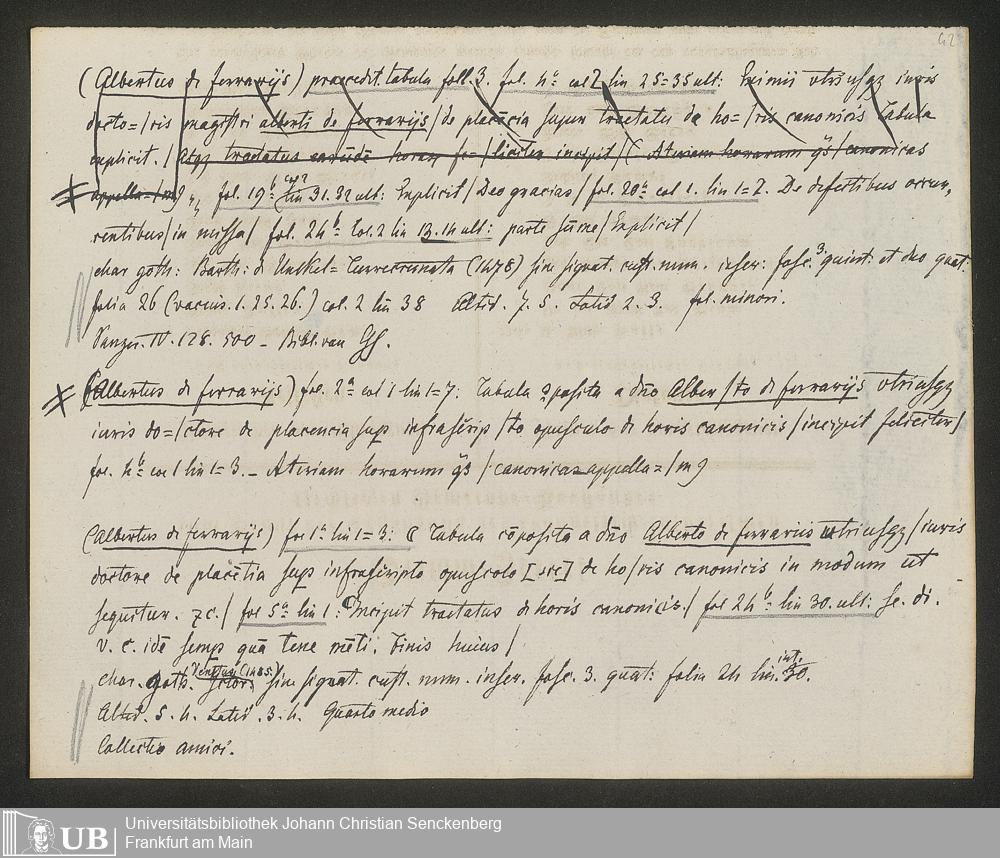 42
(Albertus de ferrarijs) praecedit tabula foll. 3. fol. 4ª col 2 lin 25=35 ult: Eximii vtriusqz iuris
docto=/ris magistri alberti de ferrarijs/de placēcia super tractatu de ho=/ris canonicis Tabula
explicit./Atqz tractatus horarz fe=/liciter incipit/( Ateriam horarum q̄s/canonicas
appella=/mꝰ,, fol. 19ᵇ col 2 lin 31.32 ult: Explicit/Deo gracias/fol. 20ª col 1. lin 1=2. De defectibus occur,
rentibus/in missa/ fol. 24ᵇ Col. 2 lin 13.14 ult: parte sūme/Explicit/
char goth: Barth: de Unkel= (1478) sine signat. cust. num. inser: fasc. 3 quint: et duo quat:
folia 26 (vacuis. 1. 25. 26.) col. 2 lin 38 Altid. 7. 5. Latid 2. 3. fol. minori.
Panzer. IV. 128. 500 – Bibl. van
(Albertus de ferrarijs) fol. 2ª col 1 lin 1=7: Tabula ꝯposita a dn̄o Alber/to de ferrarijs vtriusqz
iuris do=/ctore de placencia sup infrascrip/to opusculo de horis canonicis/incipit feliciter/
fol. 4ᵇ col 1 lin 1=3. – Ateriam horarum q̄s/canonicas appella=/mꝰ
(Albertus de ferrarijs) fol 1ª lin 1=3: ( Tabula cōposita a dn̄o Alberto de ferrariis vtriusqz/iuris
doctore de placētia sup infrascripto opuscolo [sic] de ho/ris canonicis in modum ut
sequitur. zc./ fol 5ª lin 1: Incipit tractatus de horis canonicis./ fol 24ᵇ lin 30. ult: se. di.
v. c. idē semp quā tene mēti. Finis huius/
char. goth. Venetus (1485) sine signat. cust. num. inser. fasc. 3. quat: folia 24 lin. int. 30.
Altid. 5. 4. Latid. 3. 4. Quarto medio
Collectio amici.
UB
Universitätsbibliothek Johann Christian Senckenberg
Frankfurt am Main